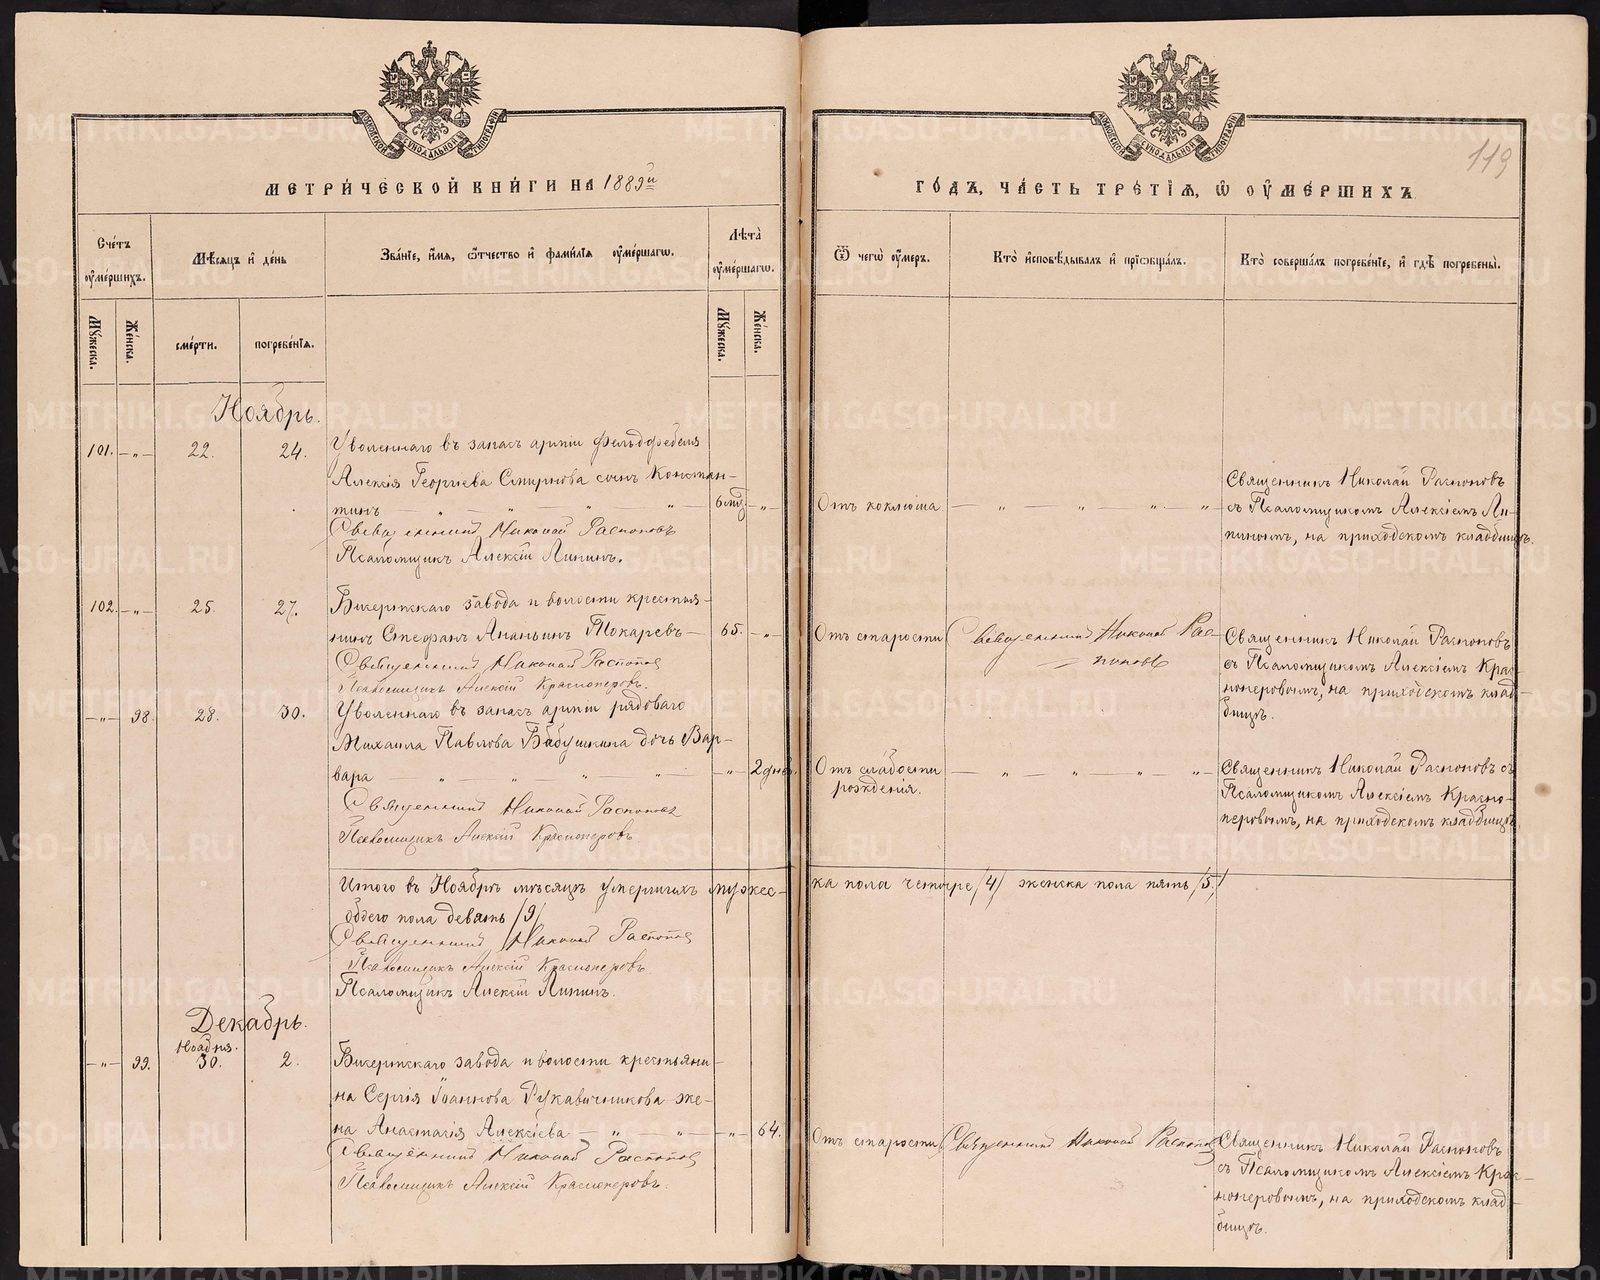 МЕТРИЧЕСКОЙ КНИГИ НА 1889й
Счетъ умершихъ.
Мѣсяцъ и день
Званіе, имя, отчество и фамилія умершаго.
Лѣта умершаго.
Мужеска.
Женска.
смерти.
погребенія.
Мужеска.
Женска.
Ноябрь.
101. — „ — 22. 24.
Уволеннаго въ запасъ арміи фельдфебеля
Алексія Георгіева Смирнова сынъ Констан-
тинъ — „ — „ — „ — „ — 6 мѣс. — „ —
Священникъ Николай Распоповъ
Псаломщикъ Алексій Липинъ.
102. — „ — 25. 27.
Бисертскаго завода и волости крестья-
нинъ Стефанъ Ананьинъ Токаревъ — 65. — „ —
Священникъ Николай Распоповъ
Псаломщикъ Алексій Красноперовъ.
— „ — 98. 28. 30.
Уволеннаго въ запасъ арміи рядоваго
Михаила Павлова Бабушкина дочь Вар-
вара — „ — „ — „ — „ — — „ — 2 дней.
Священникъ Николай Распоповъ
Псаломщикъ Алексій Красноперовъ.
Итого въ Ноябрѣ мѣсяцѣ умершихъ мужес-
обоего пола девять /9/
Священникъ Николай Распоповъ
Псаломщикъ Алексій Красноперовъ.
Псаломщикъ Алексій Липинъ.
Декабрь.
Ноября.
— „ — 99. 30. 2.
Бисертскаго завода и волости крестьяни-
на Сергія Іоаннова Рукавичникова же-
на Анастасія Алексіева — „ — „ — — „ — 64.
Священникъ Николай Распоповъ
Псаломщикъ Алексій Красноперовъ.
119
ГОДЪ, ЧАСТЬ ТРЕТІЯ, Ѡ ОУМЕРШИХЪ
Ѿ чего умеръ.
Кто исповѣдывалъ и пріобщалъ.
Кто совершалъ погребеніе, и гдѣ погребены.
Отъ коклюша — „ — „ — „ — „
Священникъ Николай Распоповъ
съ Псаломщикомъ Алексіемъ Ли-
пинымъ, на приходскомъ кладбищѣ.
Отъ старости
Священникъ Николай Рас-
поповъ
Священникъ Николай Распоповъ
съ Псаломщикомъ Алексіемъ Крас-
ноперовымъ, на приходскомъ клад-
бищѣ.
Отъ слабости
рожденія.
— „ — „ — „ — „
Священникъ Николай Распоповъ съ
Псаломщикомъ Алексіемъ Красно-
перовымъ, на приходскомъ кладбищѣ.
ка пола четыре /4/ женска пола пять /5/
Отъ старости
Священникъ Николай Распоповъ
Священникъ Николай Распоповъ
съ Псаломщикомъ Алексіемъ Крас-
ноперовымъ, на приходскомъ клад-
бищѣ.
METRIKI.GASO-URAL.RU